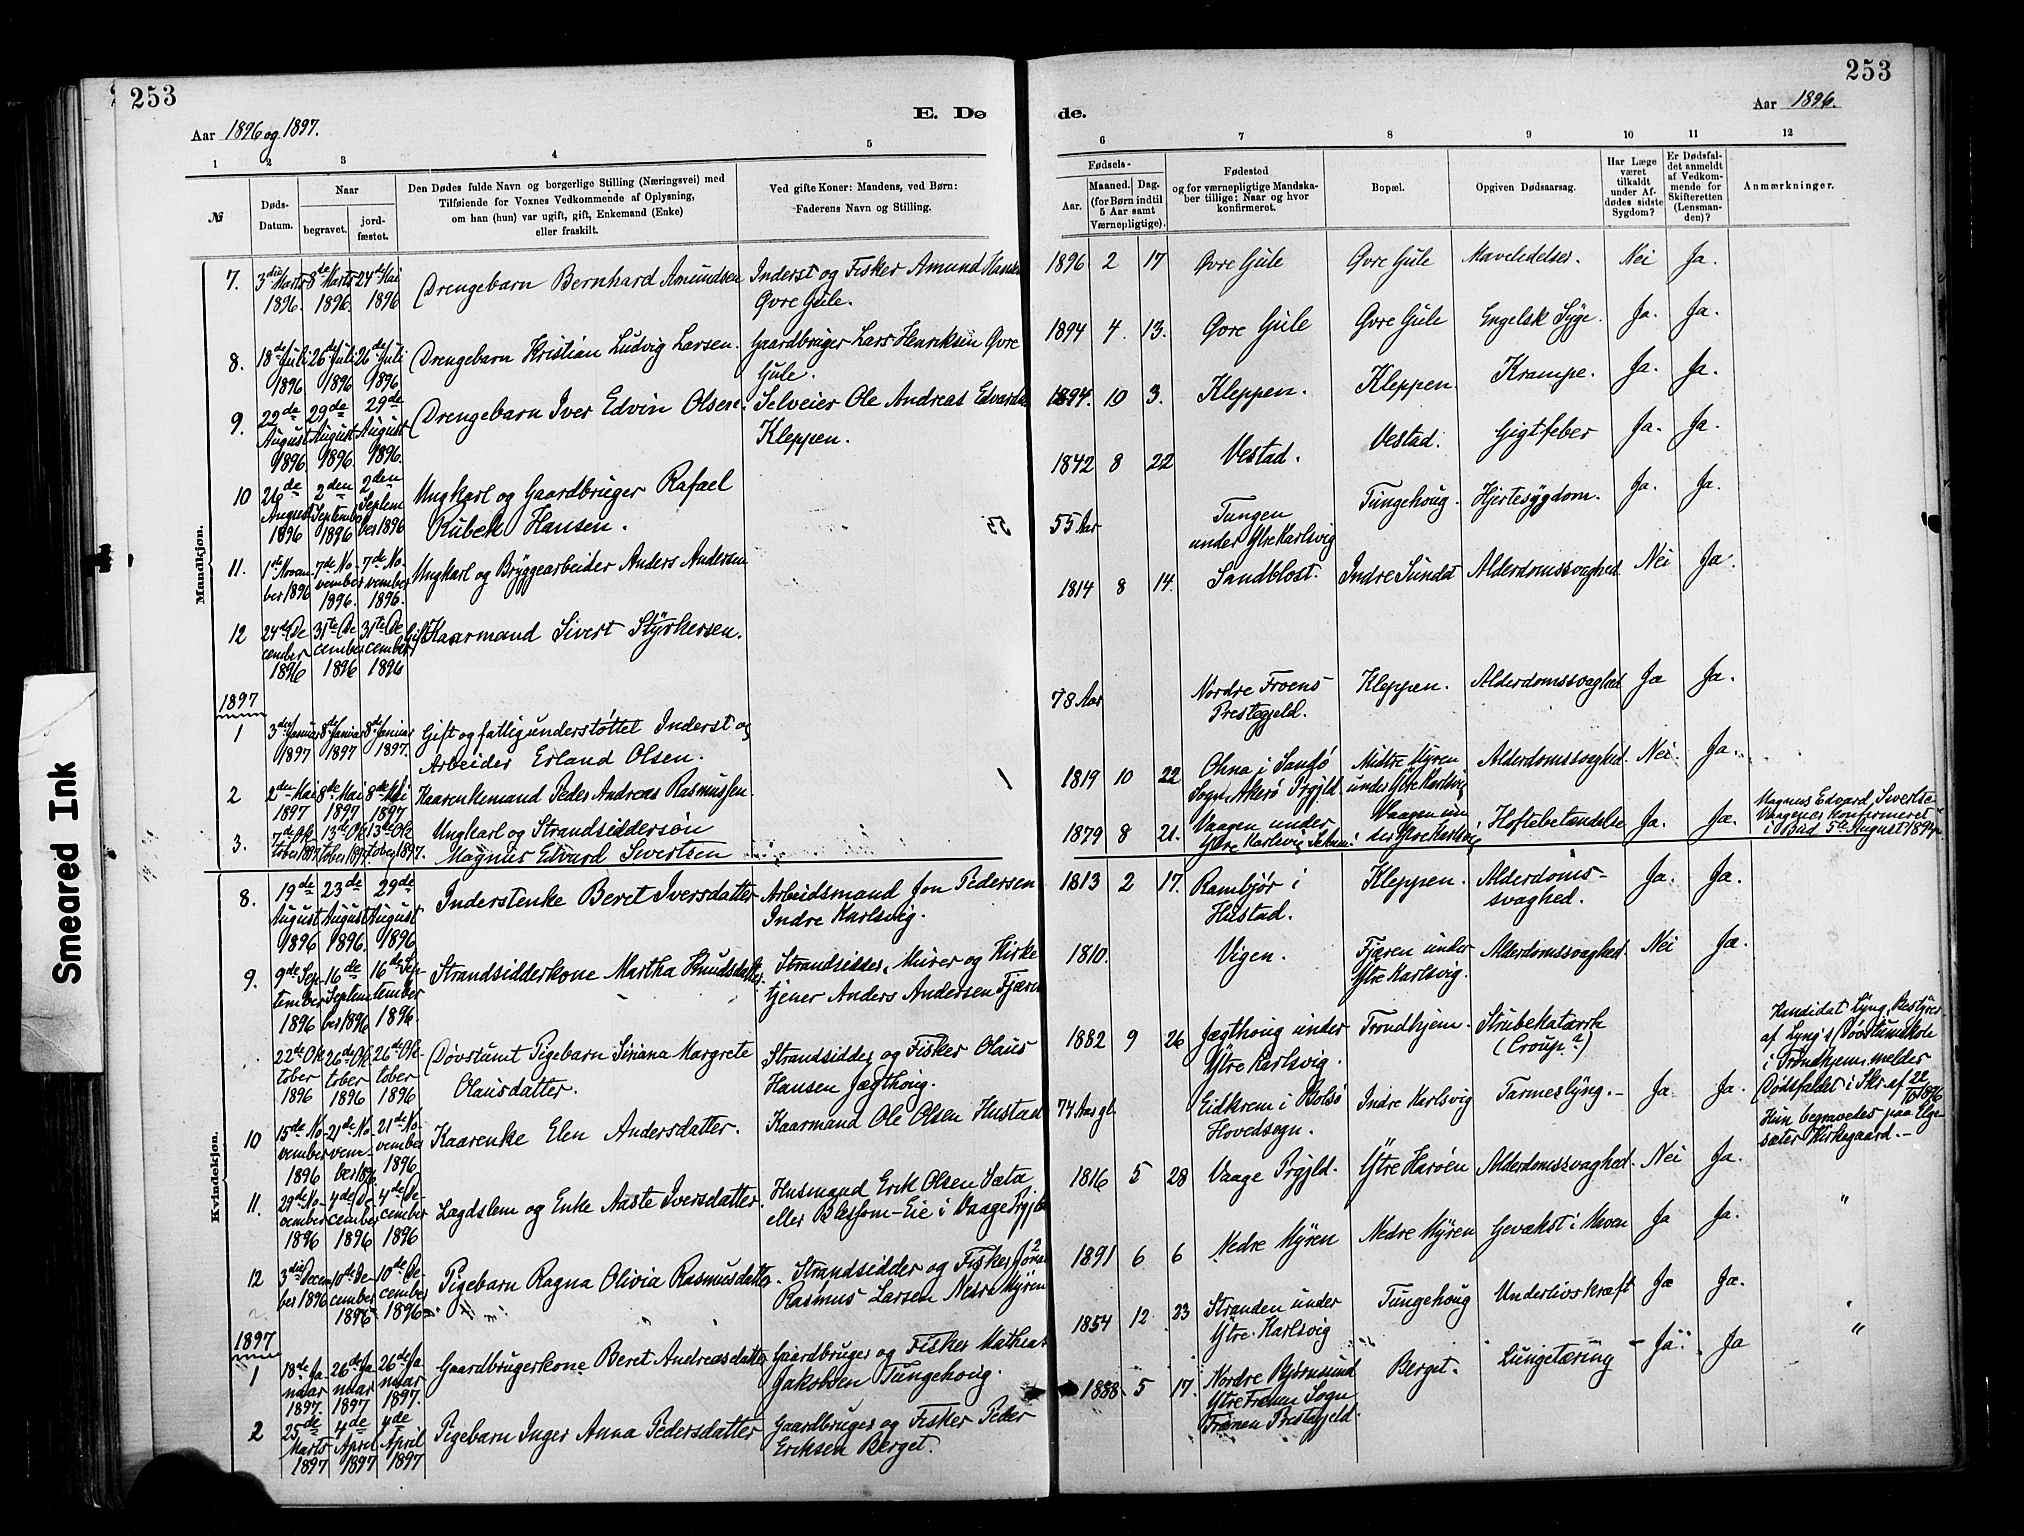 253
E. Dø
Aar 1896 og 1897.
1 2 3 4 5
№
Døds-Datum.
Naar
begravet.
jord-fæstet.
Den Dødes fulde Navn og borgerlige Stilling (Næringsvei) med
Tilføiende for Voxnes Vedkommende af Oplysning,
om han (hun) var ugift, gift, Enkemand (Enke)
eller fraskilt.
Ved gifte Koner: Mandens, ved Børn:
Faderens Navn og Stilling.
Mandkjøn.
7. 3die Marts 1896. 8de Marts 1896. 24de Mai 1896 Drengebarn Bernhard Amundsen Inderst og Fisker Amund
Gvre Gule.
8. 18de Juli 1896 26de Juli 1896 26de Juli 1896. Drengebarn Kristian Ludvig Larsen. Gaardbruger Lars Henriksen Qvre
Gule.
9. 22de August 1896 29de August 1896. 29de August 1896. Drengebarn Iver Edvin Olsen. Selveier Ole Andreas
Kleppen.
10 26de August 1896 2den Septembe 1896 2den Septem ber 1896 Ungkarl og Gaardbruger Rafael
Rubek Hansen.
11. 1ste Novem ber 1896 7de No vember 1896. 7de No vember 1896. Ungkarl og Bryggearbeider Anders Andersen
12 24de De cember 1896 31te De cember 1896 31te De cember 1896 Gift Kaarmand Sivert Styrkersen.
1897
1 3die Januar 1897 8de Januar 1897 8de Januar 1897. Gift og fattigunderstøttet Inderst og
Arbeider Erland Olsen.
2 2den Mai 1897 8de Mai 1897 8de Mai 1897 Kaarenkemand Peder Andreas Rasmussen.
3. 7de Ok tober 1897 13de Ok tober 1897. 13de Ok tober 1897. Ungkarl og Strandsiddersøn
Magnus Edvard Sivertsen
Kvindekjøn.
8. 19de August 1896 23de August 1896. 29de August 1896 Inderstenke Beret Iversdatter Arbeidsmand Jon Pedersen
Indre Karlsvig.
9. 9de Sep- tember 1896 16de Septem ber 1896 16de Sep- tember 1896. Strandsidderkone Martha Knudsdatter. Strandsidder, Murer og Kirke
tjener Anders Andersen Fjæren
22de Ok tober 1896 26de Ok tober 1896 26de Ok- tober 1896 Døvstumt Pigebarn Siriana Margrete Strandsidder og Fisker Olaus
Olausdatter. Hansen Jægthoug.
10 15de No vember 1896 21de No vem- ber 1896 21de No vember 1896 Kaarenke Elen Andersdatter. Kaarmand Ole Olsen Hustad
11. 29de No vember 1896 4de De- cember 1896 4de De- cember 1896 Lægdslem og Enke Aaste Iversdatter. Husmand Erik Olsen Sæta
eller Blessom-Eie i Vaage
12 3die Decem ber 1896 10de De- cember 1896 10de De- cember 1896 Pigebarn Ragna Olivia Rasmusdatter Strandsidder og Fisker
Rasmus Larsen Nedre Myren
1897
1 18de Ja nuar 1897. 26de Ja nuar 1897 26de Ja nuar 1897. Gaardbrugerkone Beret Andreasdatter Gaardbruger og Fisker Mathias
Jakobsen Tungehoug.
2 25de Marts 1897 4de April 1897 4de April 1897 Pigebarn Inger Anna Pedersdatter Gaardbruger og Fisker Peder
Eriksen Berget.
253
de.
Aar 1896.
6 7 8 9 10 11 12
Fødsels-
Aar. Maaned. Dag.
(for Børn indtil
5 Aar samt
Værnepligtige).
Fødested
og for værnepligtige Mandska-
ber tillige: Naar og hvor
konfirmeret.
Bopæl.
Opgiven Dødsaarsag.
Har Læge
været
tilkaldt
under Af-
dødes sidste
Sygdom?
Er Dødsfal-
det anmeldt
af Vedkom-
mende for
Skifteretten
(Lensman-
den)?
Anmærkninger.
1896 2 17 Qvre Gule Qvre Gule Maveledelser. Nei Ja.
1894 4. 13. Qvre Gule Qvre Gule Engelsk Syge. Ja. Ja.
1894. 10 3. Kleppen. Kleppen. Krampe. Ja. Ja.
1842 8 22 Vestad. Vestad. Gigtfeber Ja. Ja.
55 Aar Tungen
under Ytre Karlsvig Tungehoug. Hjertesygdom. Ja. Ja.
1814 8 14. Sandblost. Indre Sundet Alderdomssvaghed Nei Ja.
78 Aar Nordre Froens
Prestegjeld. Kleppen. Alderdomssvaghed Ja Ja.
1819 10 22 Ohna i Sandø
Sogn Akerø Prgjld. Midtre Myren
under Ytre Karlsvig Alderdomssvaghed. Nei. Ja.
1879 8 21. Vaagen under
Ytre Karlsvig Vaagen un
der Ytre Karlsvig Hoftebetændelse Ja. Ja. Magnus Edvard Sivertse
Vaagenes Konfirmeret
i Bud 5te August 1894.
1813 2 17. Rambjør i
Hustad. Kleppen. Alderdoms-
svaghed. Ja. Ja.
1810. Vigen. Fjæren under
Ytre Karlsvig. Alderdomssvaghed. Nei Ja.
1882 9 26 Jægthoug under
Ytre Karlsvig. Trondhjem. Strubekatarrh
(Croup?) Kandidat Lyng, Bestyrer
af Lyng's Døvstumskole
i Trondhjem, melder
Dødsfaldet i Skr. af 22/10 1896
Hun begravedes paa Elge
sæter Kirkegaard.
74 Aar gl. Eidkrem i Bolsø
Hovedsogn. Indre Karlsvig Tarmeslyng. Ja Ja.
1816 5 28 Vaage Prgjld. Ytre Harøen Alderdomssvaghed. Nei Ja.
1891 6 6 Nedre Myren Nedre Myren Gevækst i Maven Ja Ja. "
1854 12 23 Stranden under
Ytre Karlsvig Tungehoug Underlivskræft Ja Ja. "
1888 5 17. Nordre Bjørnsund
Ytre Frænen Sogn
Frænen Prestegjeld. Berget. Lungetæring Ja Ja "
Smeared Ink